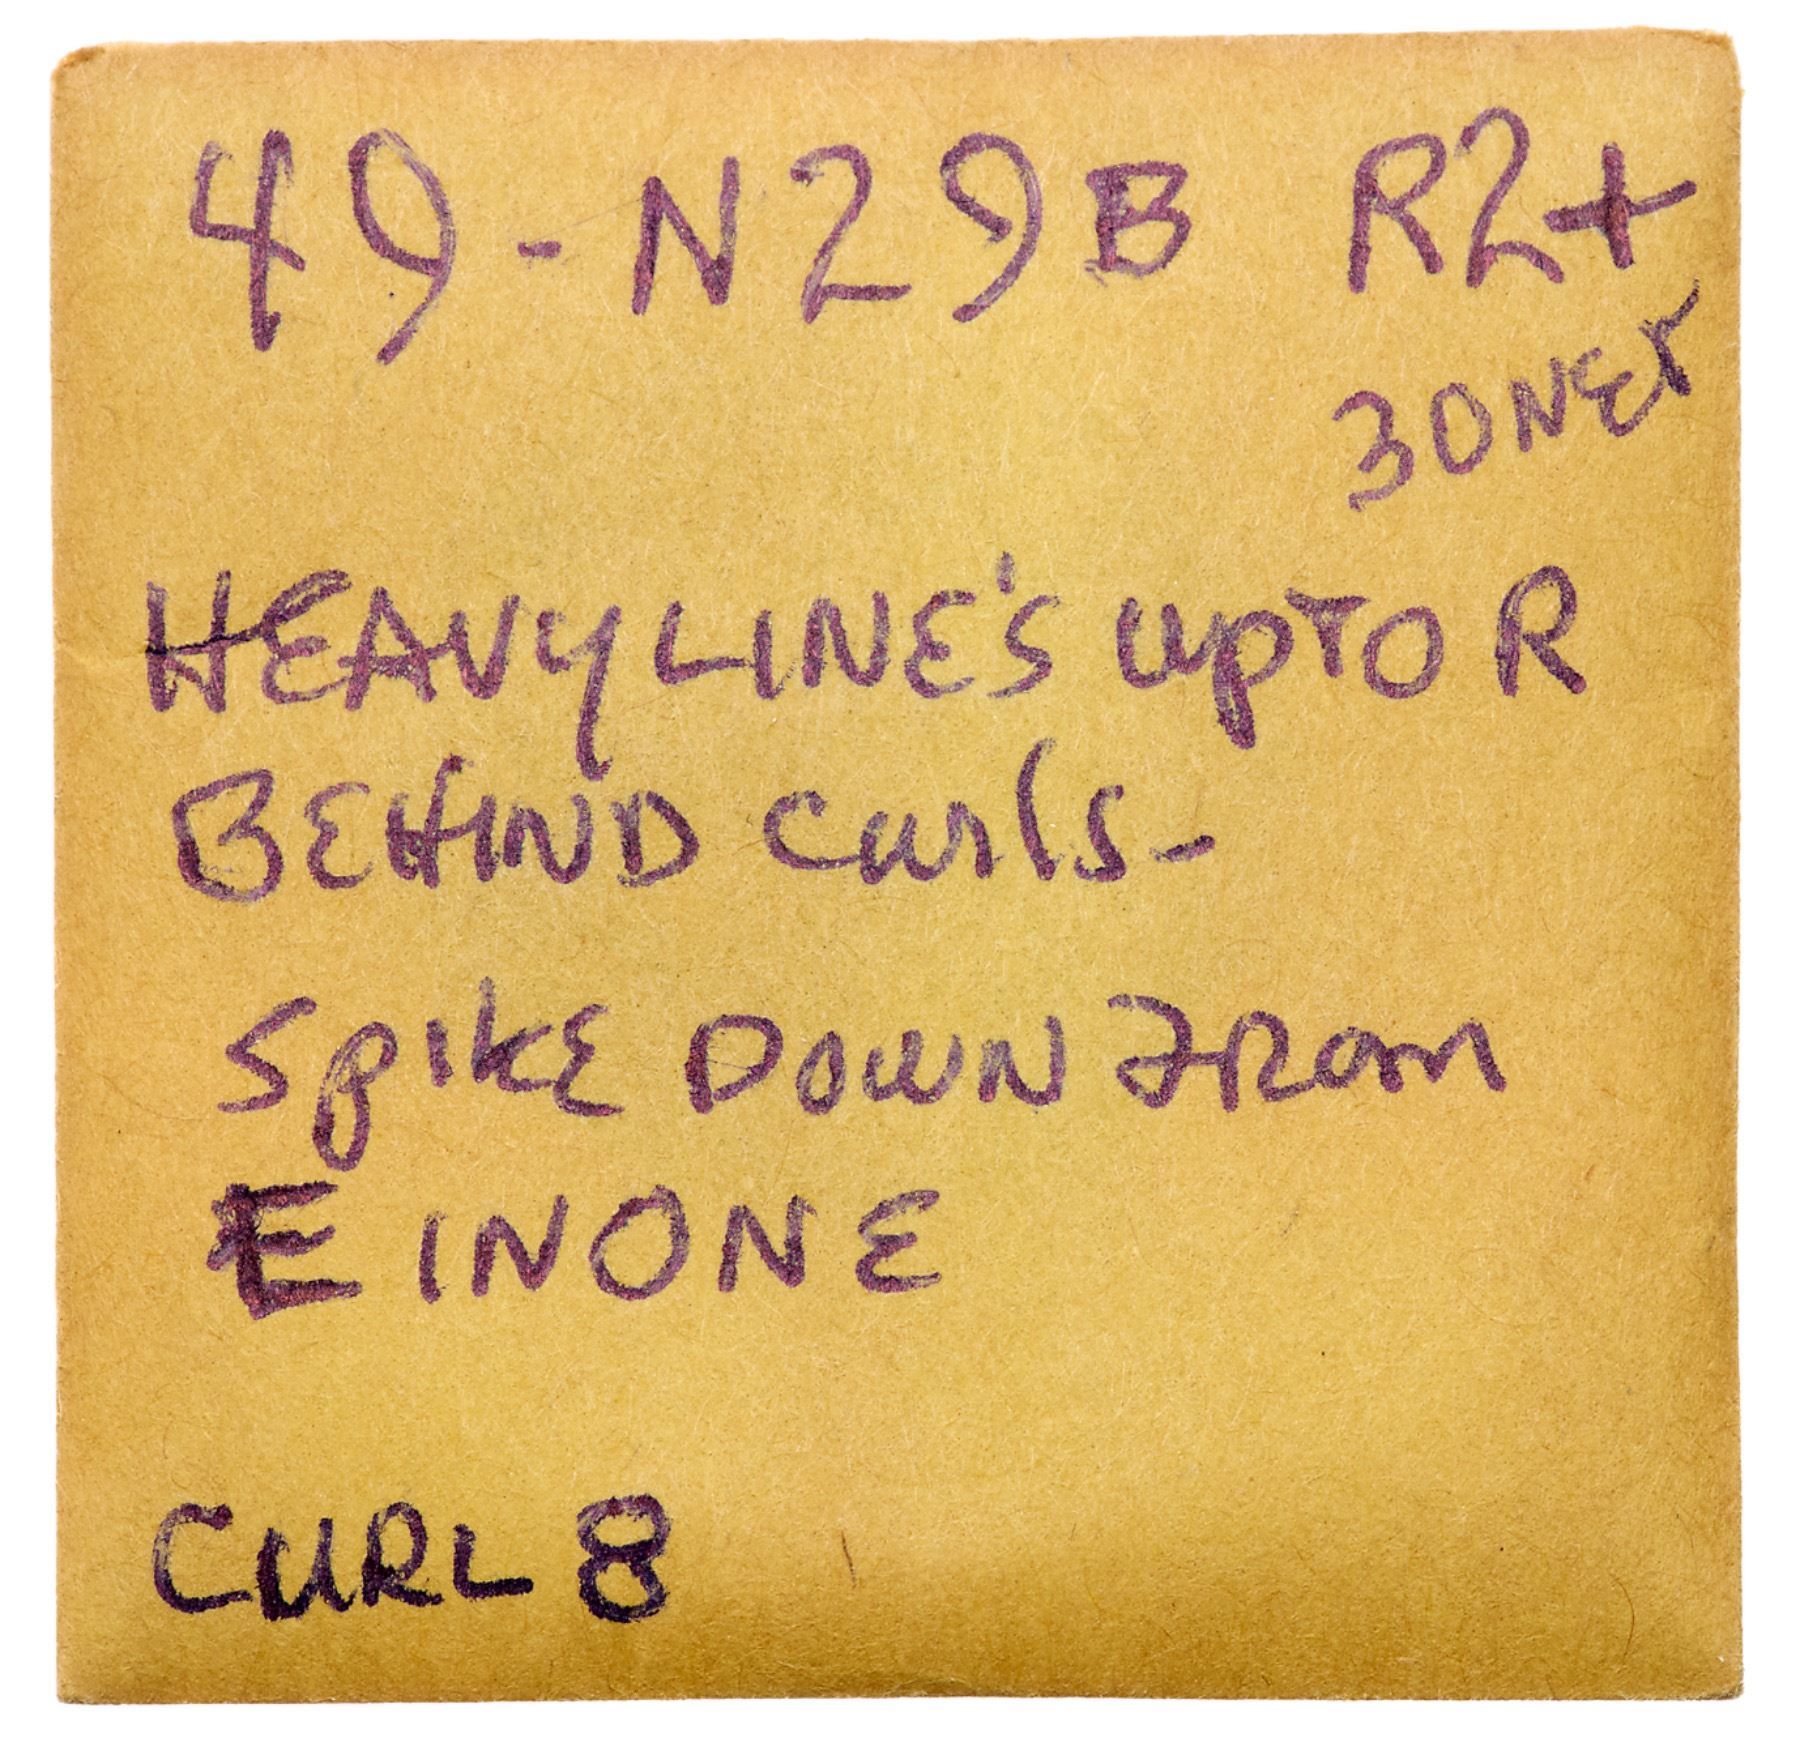 49-N29B R2+
30NET
HEAVY LINE'S UP TO R
BEHIND Curls-
Spike DOWN From
E IN ONE
CURL 8